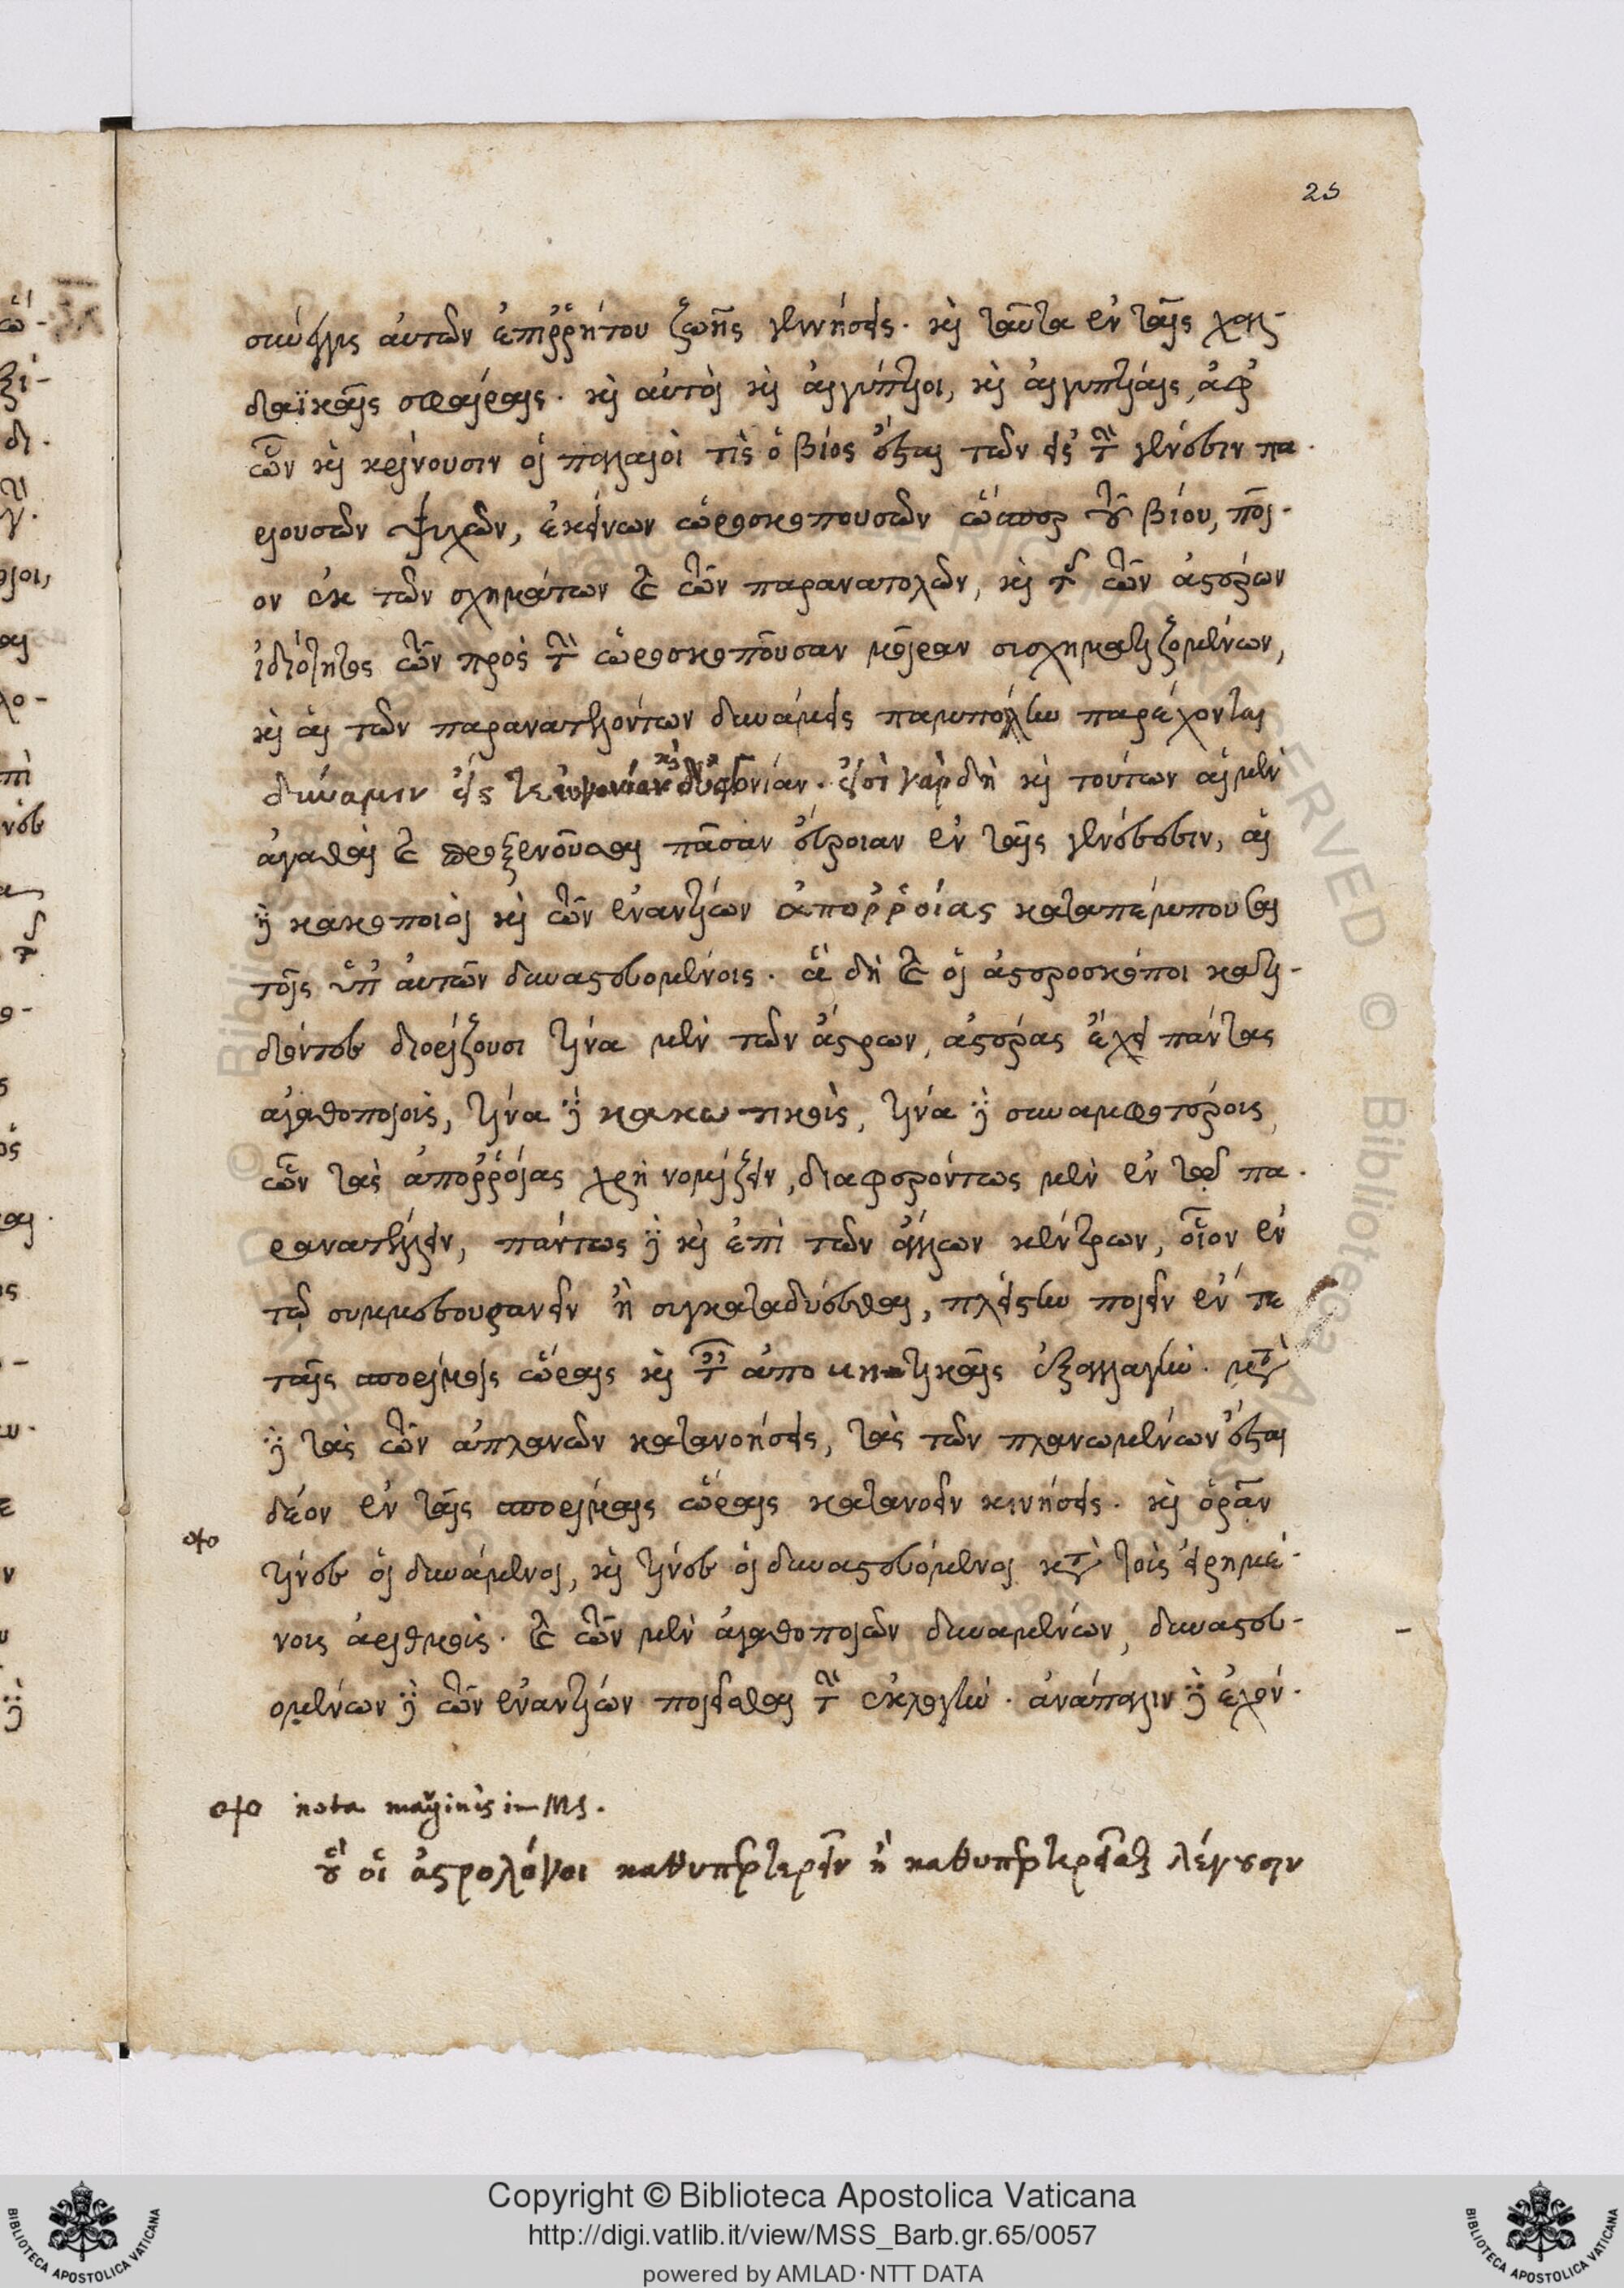 25
σκύψεις αὐτῶν ἐπιῤῥήτου ζωῆς γεννήσεις. καὶ ταῦτα ἐν ταῖς χαλ-
δαϊκαῖς σφαίραις. καὶ αὐταὶ καὶ αἰγύπτιοι, καὶ αἰγυπτίαις, ἀφ᾽
ὧν καὶ κρίνουσιν οἱ παλαιοὶ τίς ὁ βίος ἔσται τῶν εἰς τὴν γένεσιν πα-
ριουσῶν ψυχῶν, ἐκείνων ὡροσκοπουσῶν ὥσπερ τοῦ βίου, ποῖ-
ον ἐκ τῶν σχημάτων καὶ τῶν παρανατολῶν, καὶ τῆς τῶν ἀστέρων
ἰδιότητος τῶν πρὸς τὴν ὡροσκοποῦσαν μοῖραν συσχηματιζομένων,
καὶ αἱ τῶν παρανατελλόντων δυνάμεις παμπόλλην παρέχονται
δύναμιν εἴς τε εὐγονίαν καὶ δυσγονίαν. εἰσὶ γὰρ δὴ καὶ τούτων αἱ μὲν
ἀγαθαὶ καὶ προξενοῦσαι πᾶσαν εὔροιαν ἐν ταῖς γενέσεσιν, αἱ
δὲ κακοποιοὶ καὶ τῶν ἐναντίων ἀποῤῥοίας καταπέμπουσαι
τοῖς ὑπ᾽ αὐτῶν δυναστευομένοις. ἃ δὴ καὶ οἱ ἀστεροσκόποι κατι-
δόντες διορίζουσι τίνα μὲν τῶν ἄστρων, ἀστέρας ἔχει πάντας
ἀγαθοποιοὺς, τίνα δὲ κακωτικοὺς, τίνα δὲ συναμφοτέρους,
ὧν τὰς ἀποῤῥοίας χρὴ νομίζειν, διαφερόντως μὲν ἐν τῷ πα-
ρανατέλλειν, πάντως δὲ καὶ ἐπὶ τῶν ἄλλων κέντρων, οἷον ἐν
τῷ συμμεσουρανεῖν ἢ συγκαταδύεσθαι, πλείστην ποιεῖν ἔν τε
ταῖς σπορίμοις ὥραις καὶ ταῖς ἀποκυητικαῖς ἐξαλλαγήν. μετὰ
δὲ τὰς τῶν ἀπλανῶν κατανοήσεις, τὰς τῶν πλανωμένων ἔσται
δέον ἐν ταῖς σπορίμαις ὥραις κατανοεῖν κινήσεις. καὶ ὁρᾶν
τίνες οἱ δυνάμενοι, καὶ τίνες οἱ δυναστευόμενοι κατὰ τοὺς εἰρημέ-
νους ἀριθμοὺς. καὶ τῶν μὲν ἀγαθοποιῶν δυναμένων, δυναστευ-
ομένων δὲ τῶν ἐναντίων ποιεῖσθαι τὴν ἐκλογήν. ἀνάπαλιν δὲ ἐχόν-
nota marginis in MS.
ὃ οἱ ἀστρολόγοι καθυπερτερεῖν ἢ καθυπερτερεῖσθαι λέγουσιν
Copyright © Biblioteca Apostolica Vaticana
http://digi.vatlib.it/view/MSS_Barb.gr.65/0057
powered by AMLAD·NTT DATA
BIBLIOTECA APOSTOLICA VATICANA
BIBLIOTECA APOSTOLICA VATICANA